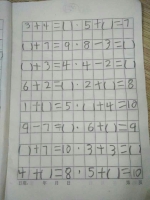 3+4=( ) · 5+( )=7
( )+7=9 · 8-3=( )
( )+3=4 · 4-2=( )
6+2=( ) · 2+( )=8
1+( )=5 · ( )+4=10
9-7=( ) · 6+( )=9
( )+7=10 · 3+3=( )
4+( )=8 · 5+( )=10